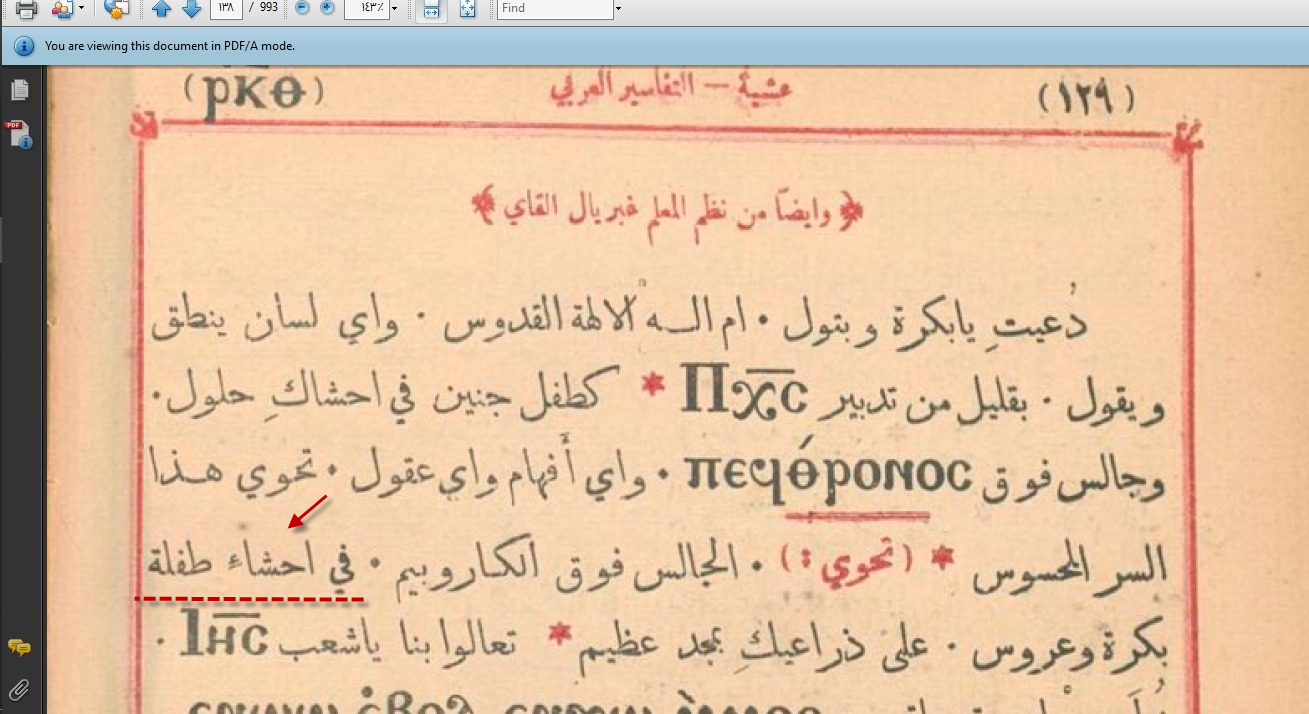 ١٣٨ / 993 ١٤٣٪ Find
You are viewing this document in PDF/A mode.
(ⲣⲕⲑ) عشية — التفاسير العربي (١٢٩)
﴿ وايضًا من نظم المعلم غبريال القاي ﴾
دُعيتِ يابكرة وبتول • ام الـــه الالهة القدوس • واي لسان ينطق
ويقول • بقليل من تدبير Ⲡⲭ̅ⲥ̅ * كطفل جنين في احشاكِ حلول •
وجالس فوق ⲡⲉϥⲑ́ⲣⲟⲛⲟⲥ • واي أفهام واي عقول • تحوي هـذا
السر المحسوس * ( تحوي : ) • الجالس فوق الكاروبيم • في احشاء طفلة
بكرة وعروس • على ذراعيكِ بمجد عظيم * تعالوا بنا ياشعب Ⲓⲏ̅ⲥ̅ •